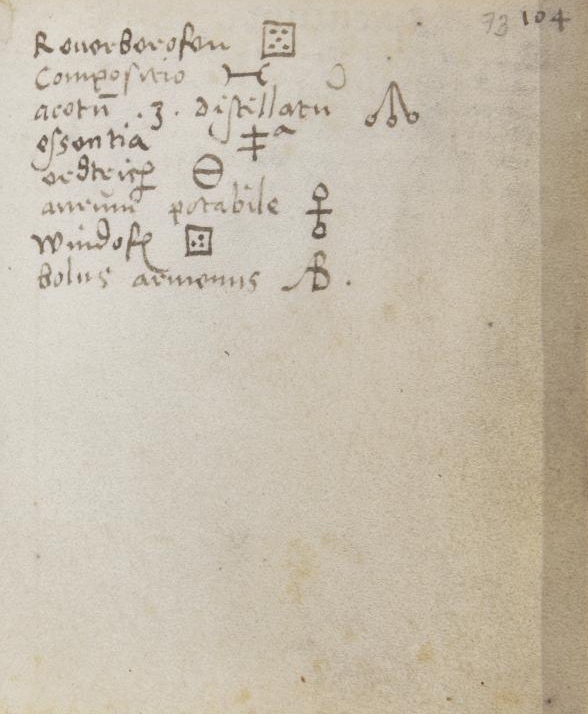 73 104
Reverberofen
Compositio
acetū . 3 . distellatū
essentia
erdtrich
aurum potabile
windofē
bolus armenus